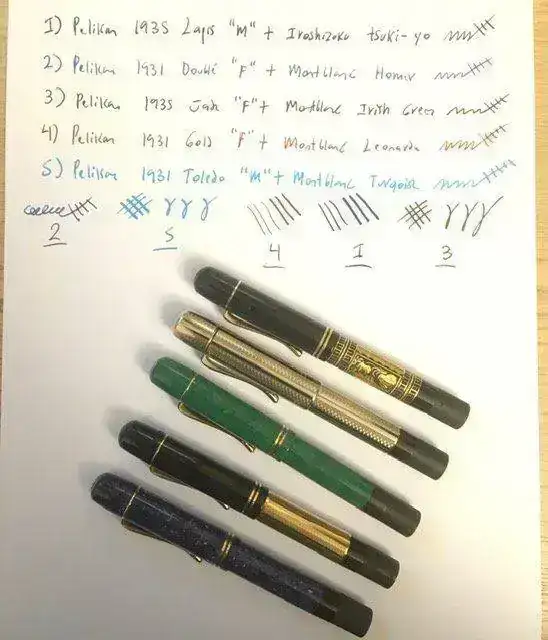 1) Pelikan 1935 Lapis "M" + Iroshizuku tsuki-yo
2) Pelikan 1931 Doublé "F" + Montblanc Homer
3) Pelikan 1935 Jade "F" + Montblanc Irish Green
4) Pelikan 1931 Gold "F" + Montblanc Leonardo
5) Pelikan 1931 Toledo "M" + Montblanc Turquoise
2 5 4 1 3